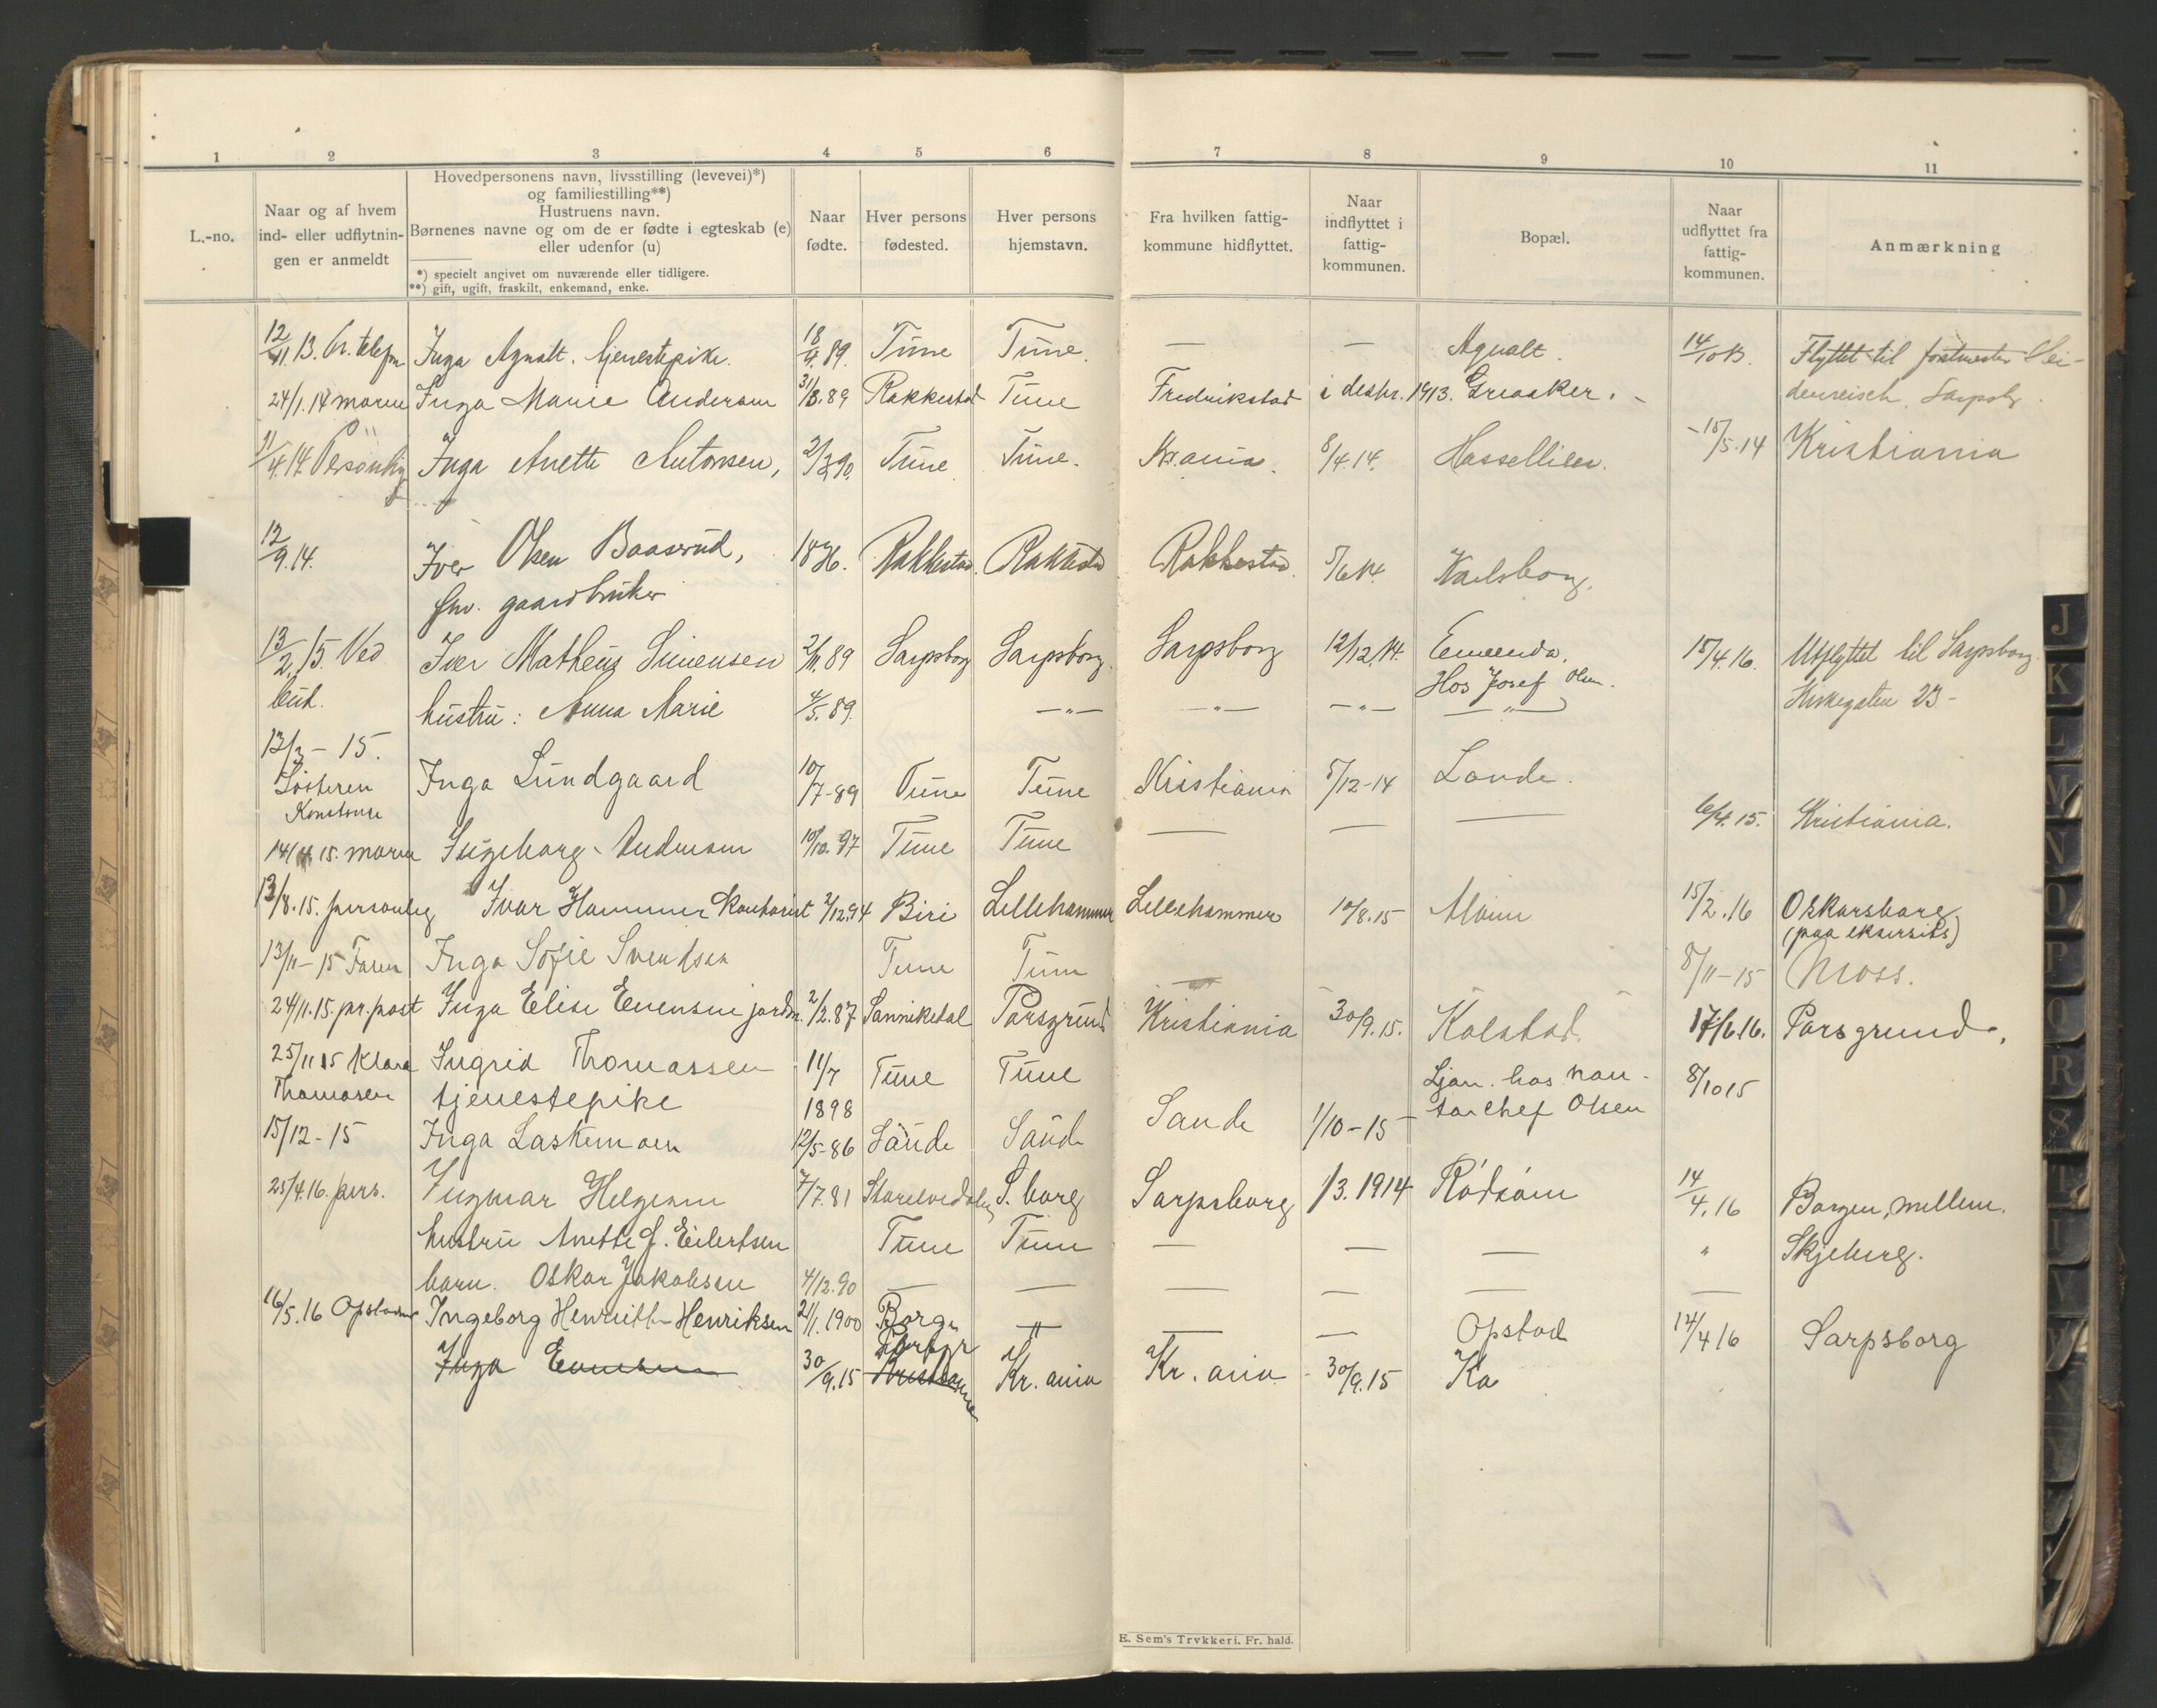 1 2 3 4 5 6 7 8 9 10 11
L.-no.
Naar og af hvem
ind- eller udflytnin-
gen er anmeldt
Hovedpersonens navn, livsstilling (levevei)*)
og familiestilling**)
Hustruens navn.
Børnenes navne og om de er fødte i egteskab (e)
eller udenfor (u)
*) specielt angivet om nuværende eller tidligere.
**) gift, ugift, fraskilt, enkemand, enke.
Naar
fødte.
Hver persons
fødested.
Hver persons
hjemstavn.
Fra hvilken fattig-
kommune hidflyttet.
Naar
indflyttet i
fattig-
kommunen.
Bopæl.
Naar
udflyttet fra
fattig-
kommunen.
Anmærkning
12/11 13. Pr. telefon Inga Agnalt. tjenestepike. 18/4 89. Tune Tune. — — Agnalt. 14/10 13. Flyttet til postmester Hei-
24/1.14 moren Inga Marie Andersen 31/8.89 Rakkestad Tune Fredrikstad i desbr. 1913. Greaaker. denreich. Sarpsbg.
11/4.14. Personlig Inga Anette Antonsen, 2/3 90. Tune Tune. Kr.ania. 8/4.14. Hasselliien. 15/5.14 Kristiania
12/9.14. Iver Olsen Baasrud, 1836. Rakkestad. Rakkestad Rakkestad. 5/6 14. Karlsborg.
fhv. gaardbruker
13/2.15. Ved Iver Matheus Simensen 2/11.89 Sarpsborg Sarpsborg. Sarpsborg 12/12.14. Emeenda. 15/4.16. Utflyttet til Sarpsborg.
Hos Josef Olsen.
bud. hustru: Anna Marie 4/5.89. —"— —"— —"— —"— Kirkegaten 23-
12/3 - 15.
Søsteren Inga Lundgaard 10/7-89 Tune Tune Kristiania 5/12-14 Lande.
Konstanse
14/4 15. moren Ingeborg Andersen 10/10.97 Tune Tune — — — 6/4.15. Kristiania.
13/8.15. personlig Ivar Hammer Kontorist 2/12.94 Biri Lillehammer Lillehammer 10/8.15 Alvim 15/2.16 Oskarsborg
(paa eksersits)
13/11-15 Faren Inga Sofie Svendsen Tune Tune — 8/11-15 Moss.
24/11.15. pr. post Inga Elise Evensen jordm. 2/2.87 Sanniketal Porsgrund Kristiania 30/9.15. Kalstad 17/6.16. Porsgrund.
25/11 15 Klara Ingrid Thomassen 11/7 Tune Tune Ljan. hos kon- 8/10 15
Thomasen tjenestepike 1898 torchef Olsen
15/12-15 Inga Laskemoen 12/5-86 Sande Sande Sande 1/10-15
25/4.16. pers. Ingmar Helgesen 7/7.81 S.borg Sarpsborg 1/3.1914 Rødsøm 14/4.16 Borgen, mellem.
hustru Anette J. Eilertsen Tune Tune — — — " Skjeberg.
barn. Oskar Jakobsen 4/12.90 — — — — — —
16/5.16 Opstad Ingeborg Henriette Henriksen 21/1.1900 Borge — " — — Opstad 12/4 16 Sarpsborg
Inga Evensen 30/9.15 Kristiania Kr.ania Kr.ania 30/9.15 Ka
E. Sem's Trykkeri. Fr. hald.
J
K
L
M
N
O
P
Q
R
S
T
U
V
Y